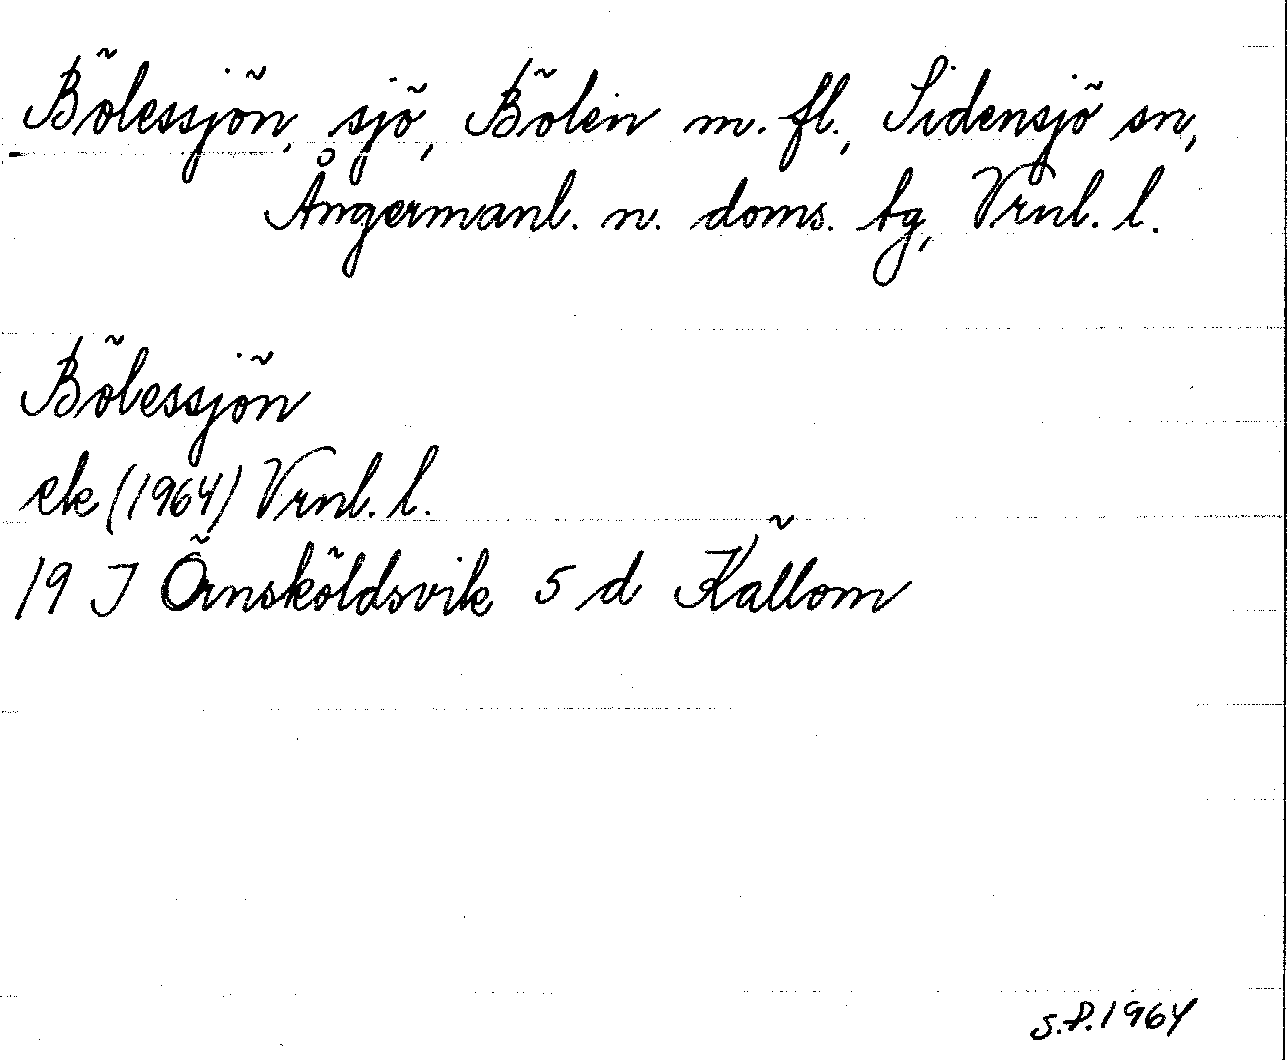 Bölessjön, sjö, Bölen m. fl., Sidensjö sn,
Ångermanl. n. doms. tg, Vrnl. l.
Bölessjön
ek (1964) Vrnl. l.
19 J Örnsköldsvik 5 d Källom
S.F. 1964